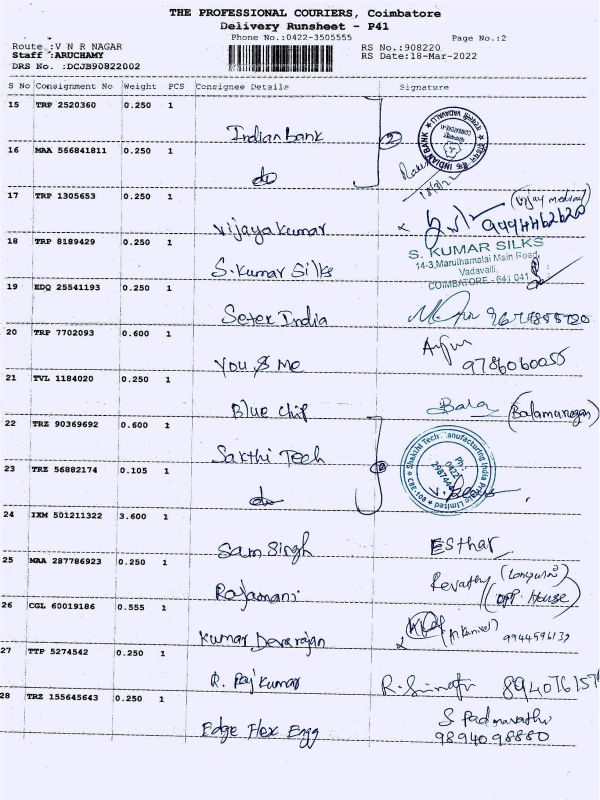 THE PROFESSIONAL COURIERS, Coimbatore
Delivery Runsheet - P41
Phone No.:0422-3505555 Page No.:2
Route :V N R NAGAR RS No.:908220
Staff :ARUCHAMY RS Date:18-Mar-2022
DRS No. :DCJB90822002
S No Consignment No Weight PCS Consignee Details Signature
15 TRP 2520360 0.250 1
Indian Bank
2
INDIAN BANK
VADAVALLI
16 MAA 566841811 0.250 1
do
17 TRP 1305653 0.250 1
Vijayakumar
(Vijay medical)
9994462620
18 TRP 8189429 0.250 1
S. Kumar Silks
S. KUMAR SILKS
14-3, Maruthamalai Main Road,
Vadavalli,
COIMBATORE - 641 041
19 EDQ 25541193 0.250 1
Setex India
20 TRP 7702093 0.600 1
You & Me
Arjun
9786060055
21 TVL 1184020 0.250 1
Blue Chip
Bala (Balamurugan)
22 TRZ 90369692 0.600 1
Sakthi Tech
Shakthi Tech Manufacturing India Private Limited
CBE-108
Ph:
0422
23 TRZ 56882174 0.105 1
do
24 IXM 501211322 3.600 1
Sam Singh
Esthar
25 MAA 287786923 0.250 1
Rajamani
Revathy
(opp. House)
26 CGL 60019186 0.555 1
Kumar Devarajan
9944596139
27 TTP 5274542 0.250 1
R. Raj Kumar
28 TRZ 155645643 0.250 1
Edge Flex Engg
S Padmavathi
9894098880